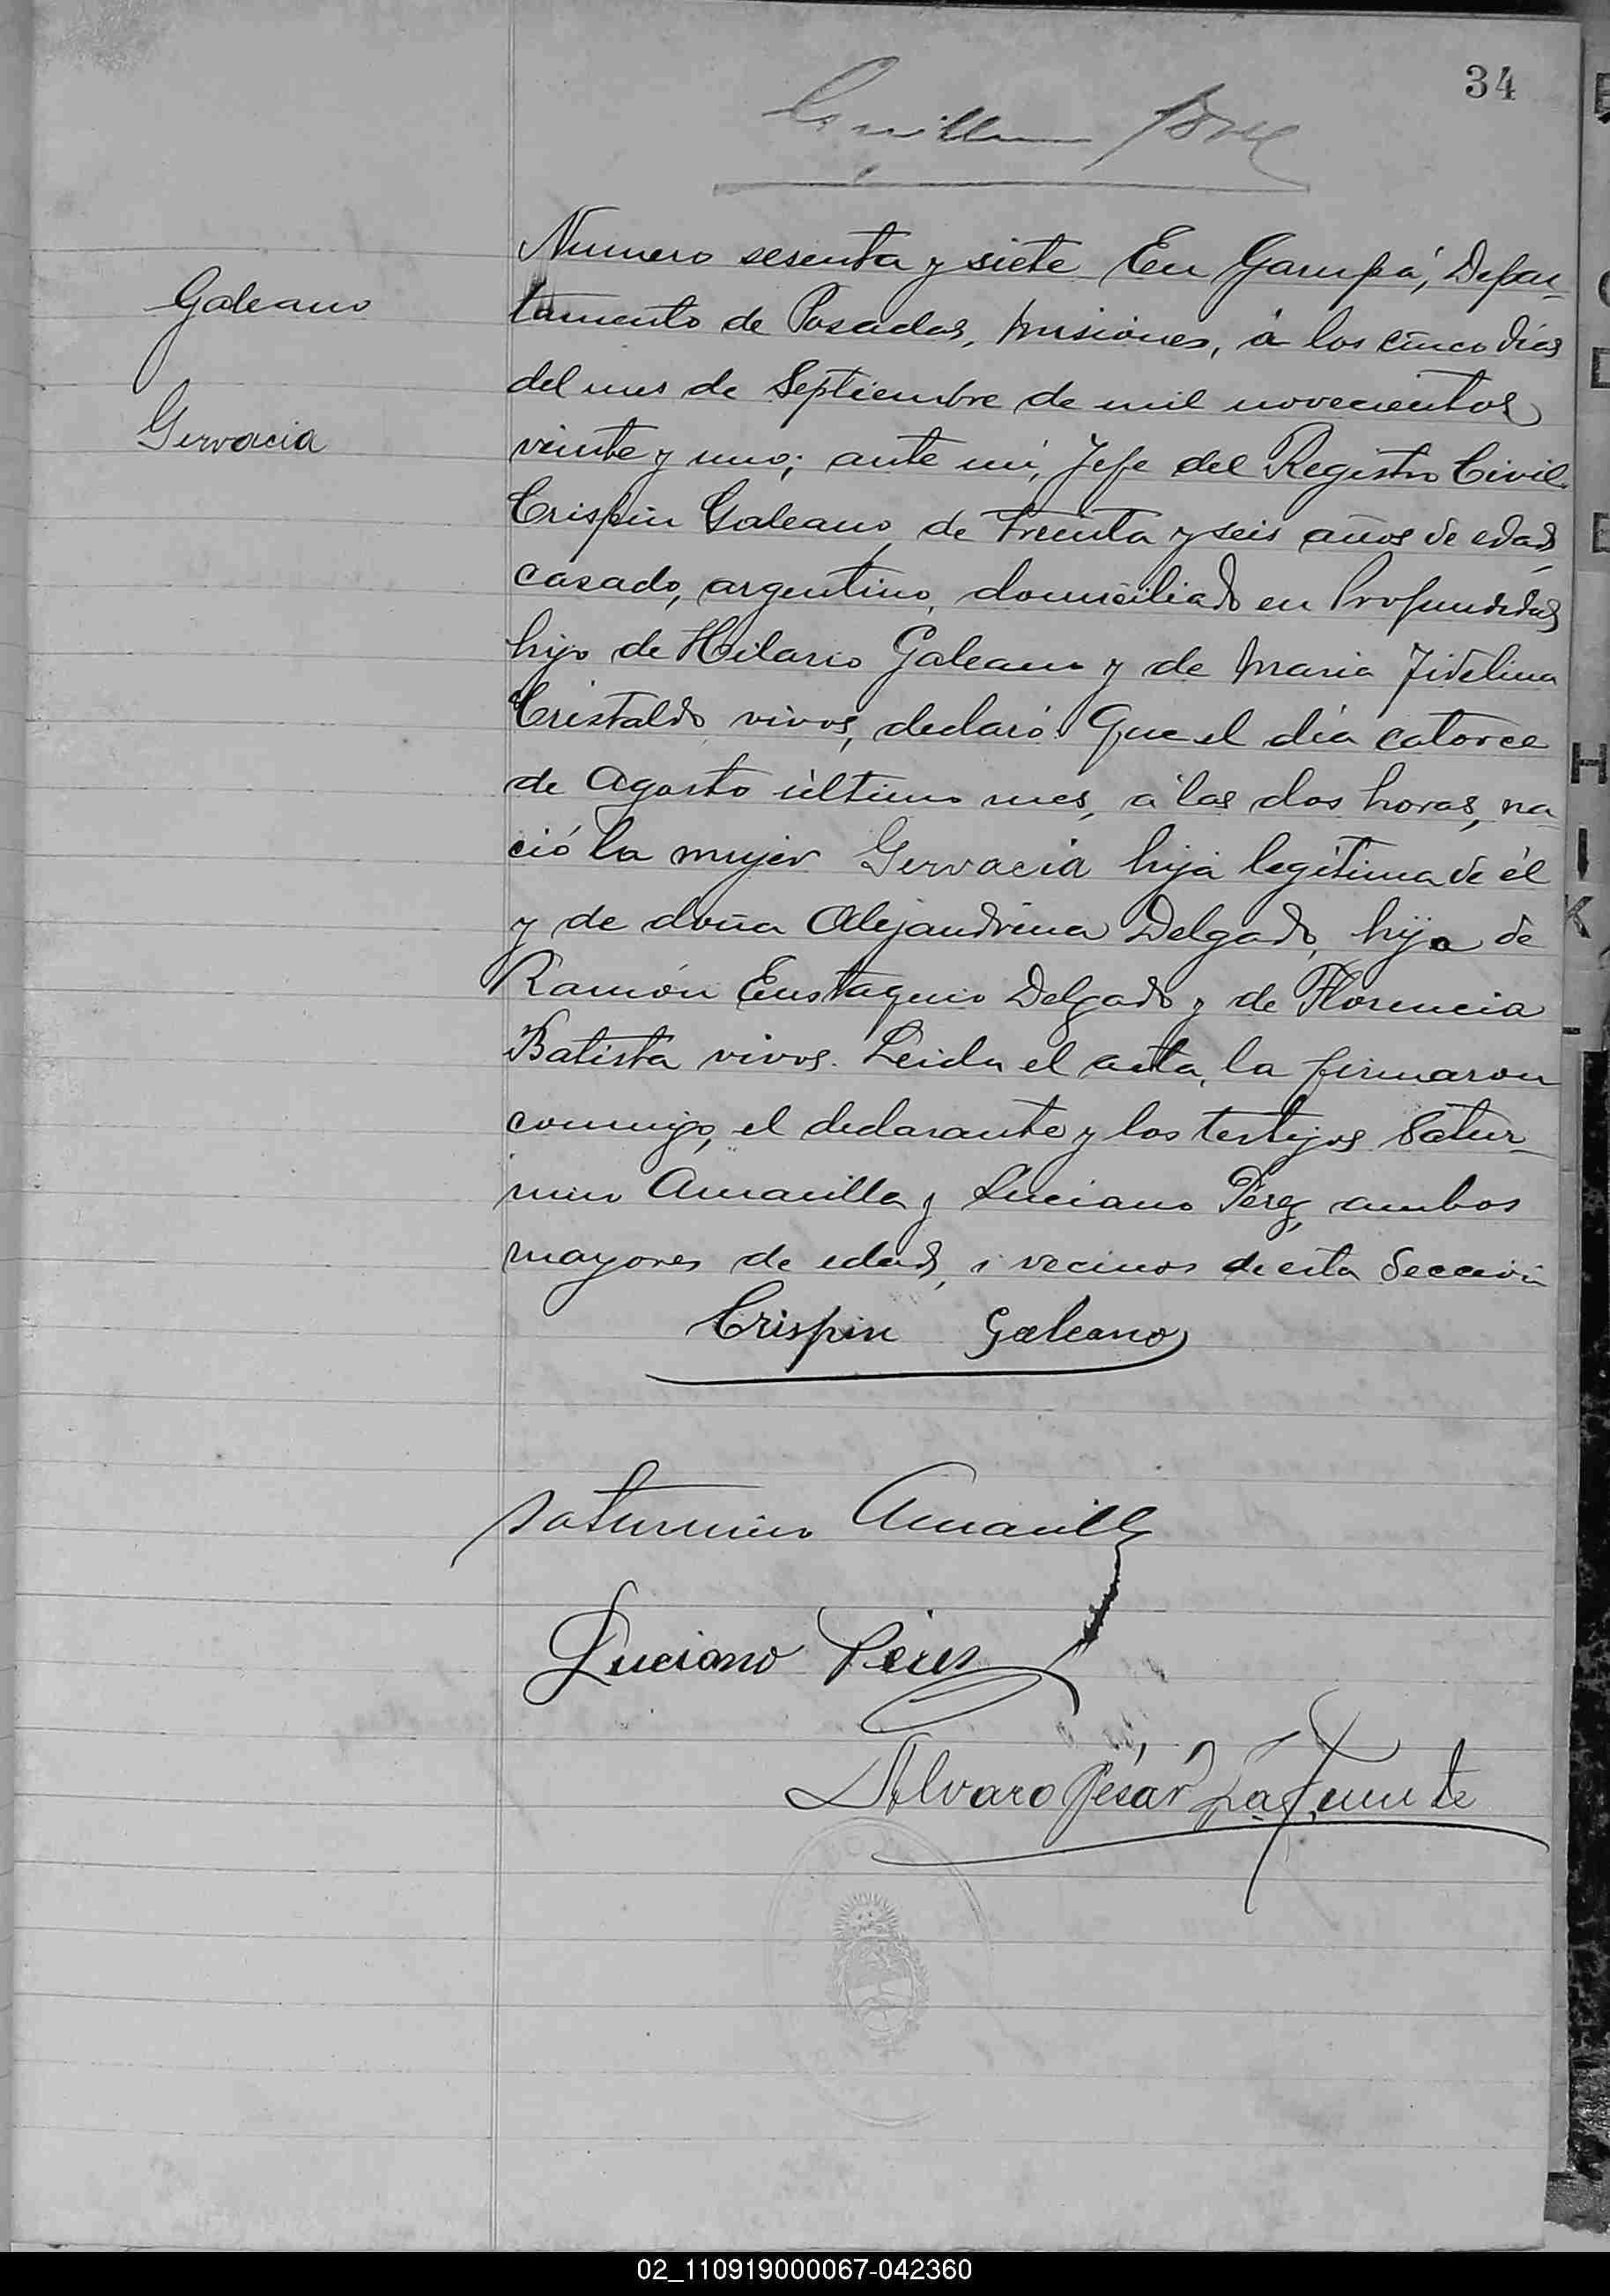 34
Galeano
Gervacia
Numero sesenta y siete En Garupá, Depar-
tamento de Posadas, Misiones, á los cinco dias
del mes de Septiembre de mil novecientos
veinte y uno; ante mi, Jefe del Registro Civil.
Crispin Galeano, de treinta y seis años de edad,
casado, argentino, domiciliado en Profundidad
hijo de Hilario Galeano y de Maria Fidelina
Cristaldo vivos, declaró: Que el dia catorce
de Agosto último mes, á las dos horas, na-
ció la mujer Gervacia hija legitima de él
y de doña Alejandrina Delgado, hija de
Ramón Eustaquio Delgado y de Florencia
Batista vivos. Leida el acta, la firmaron
conmigo, el declarante y los testigos Satur-
nino Amarilla y Luciano Perez, ambos
mayores de edad, i vecinos de esta Sección
Crispin Galeano
Saturnino Amarilla
Luciano Perez
Alvaro César Lafuente
02_110919000067-042360